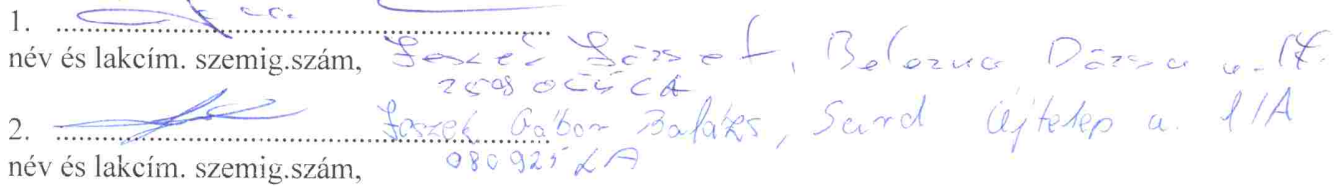 1. ..........
név és lakcím. szemig.szám, József, Belezna Dózsa u. 17.
2. .......... Joszek Gábor Balázs, Sand Újtelep u. 1/A
név és lakcím. szemig.szám, 080925LA